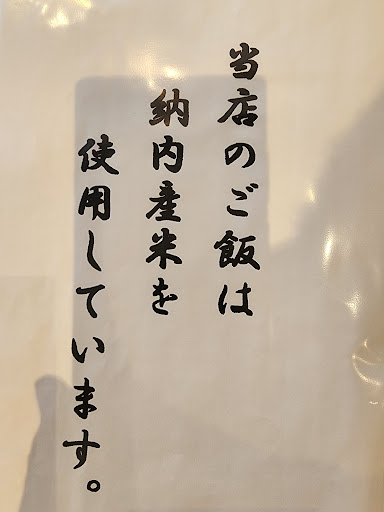 当店のご飯は
納内産米を
使用しています。